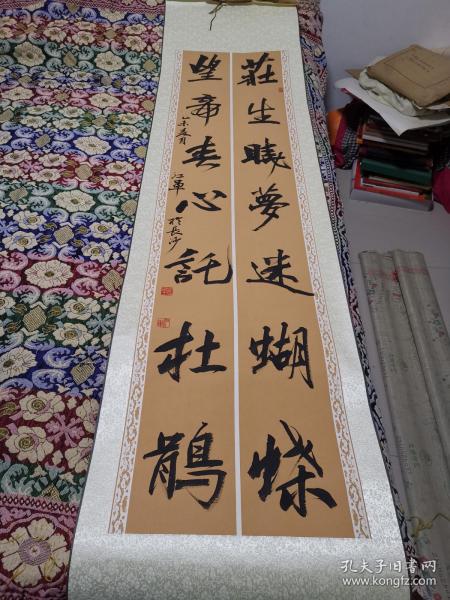 莊生曉夢迷蝴蝶
望帝春心託杜鵑
乙未夏月
江軍
於長沙
孔夫子旧书网
www.kongfz.com